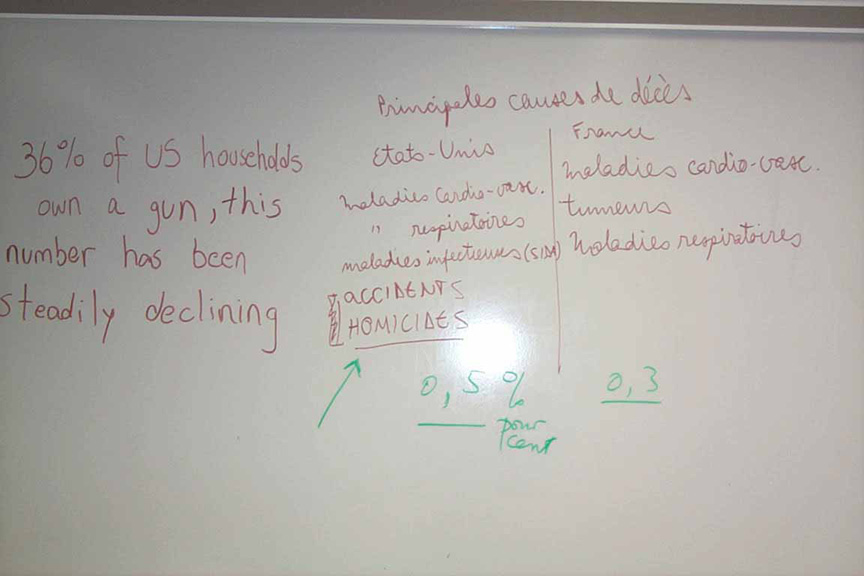 36% of US households
own a gun, this
number has been
steadily declining
Principales causes de décès
Etats-Unis
Maladies Cardio-vasc.
" respiratoires
maladies infectieuses (SIDA)
ACCIDENTS
HOMICIDES
0,5 %
pour
cent
France
maladies cardio-vasc.
tumeurs
Maladies respiratoires
0,3